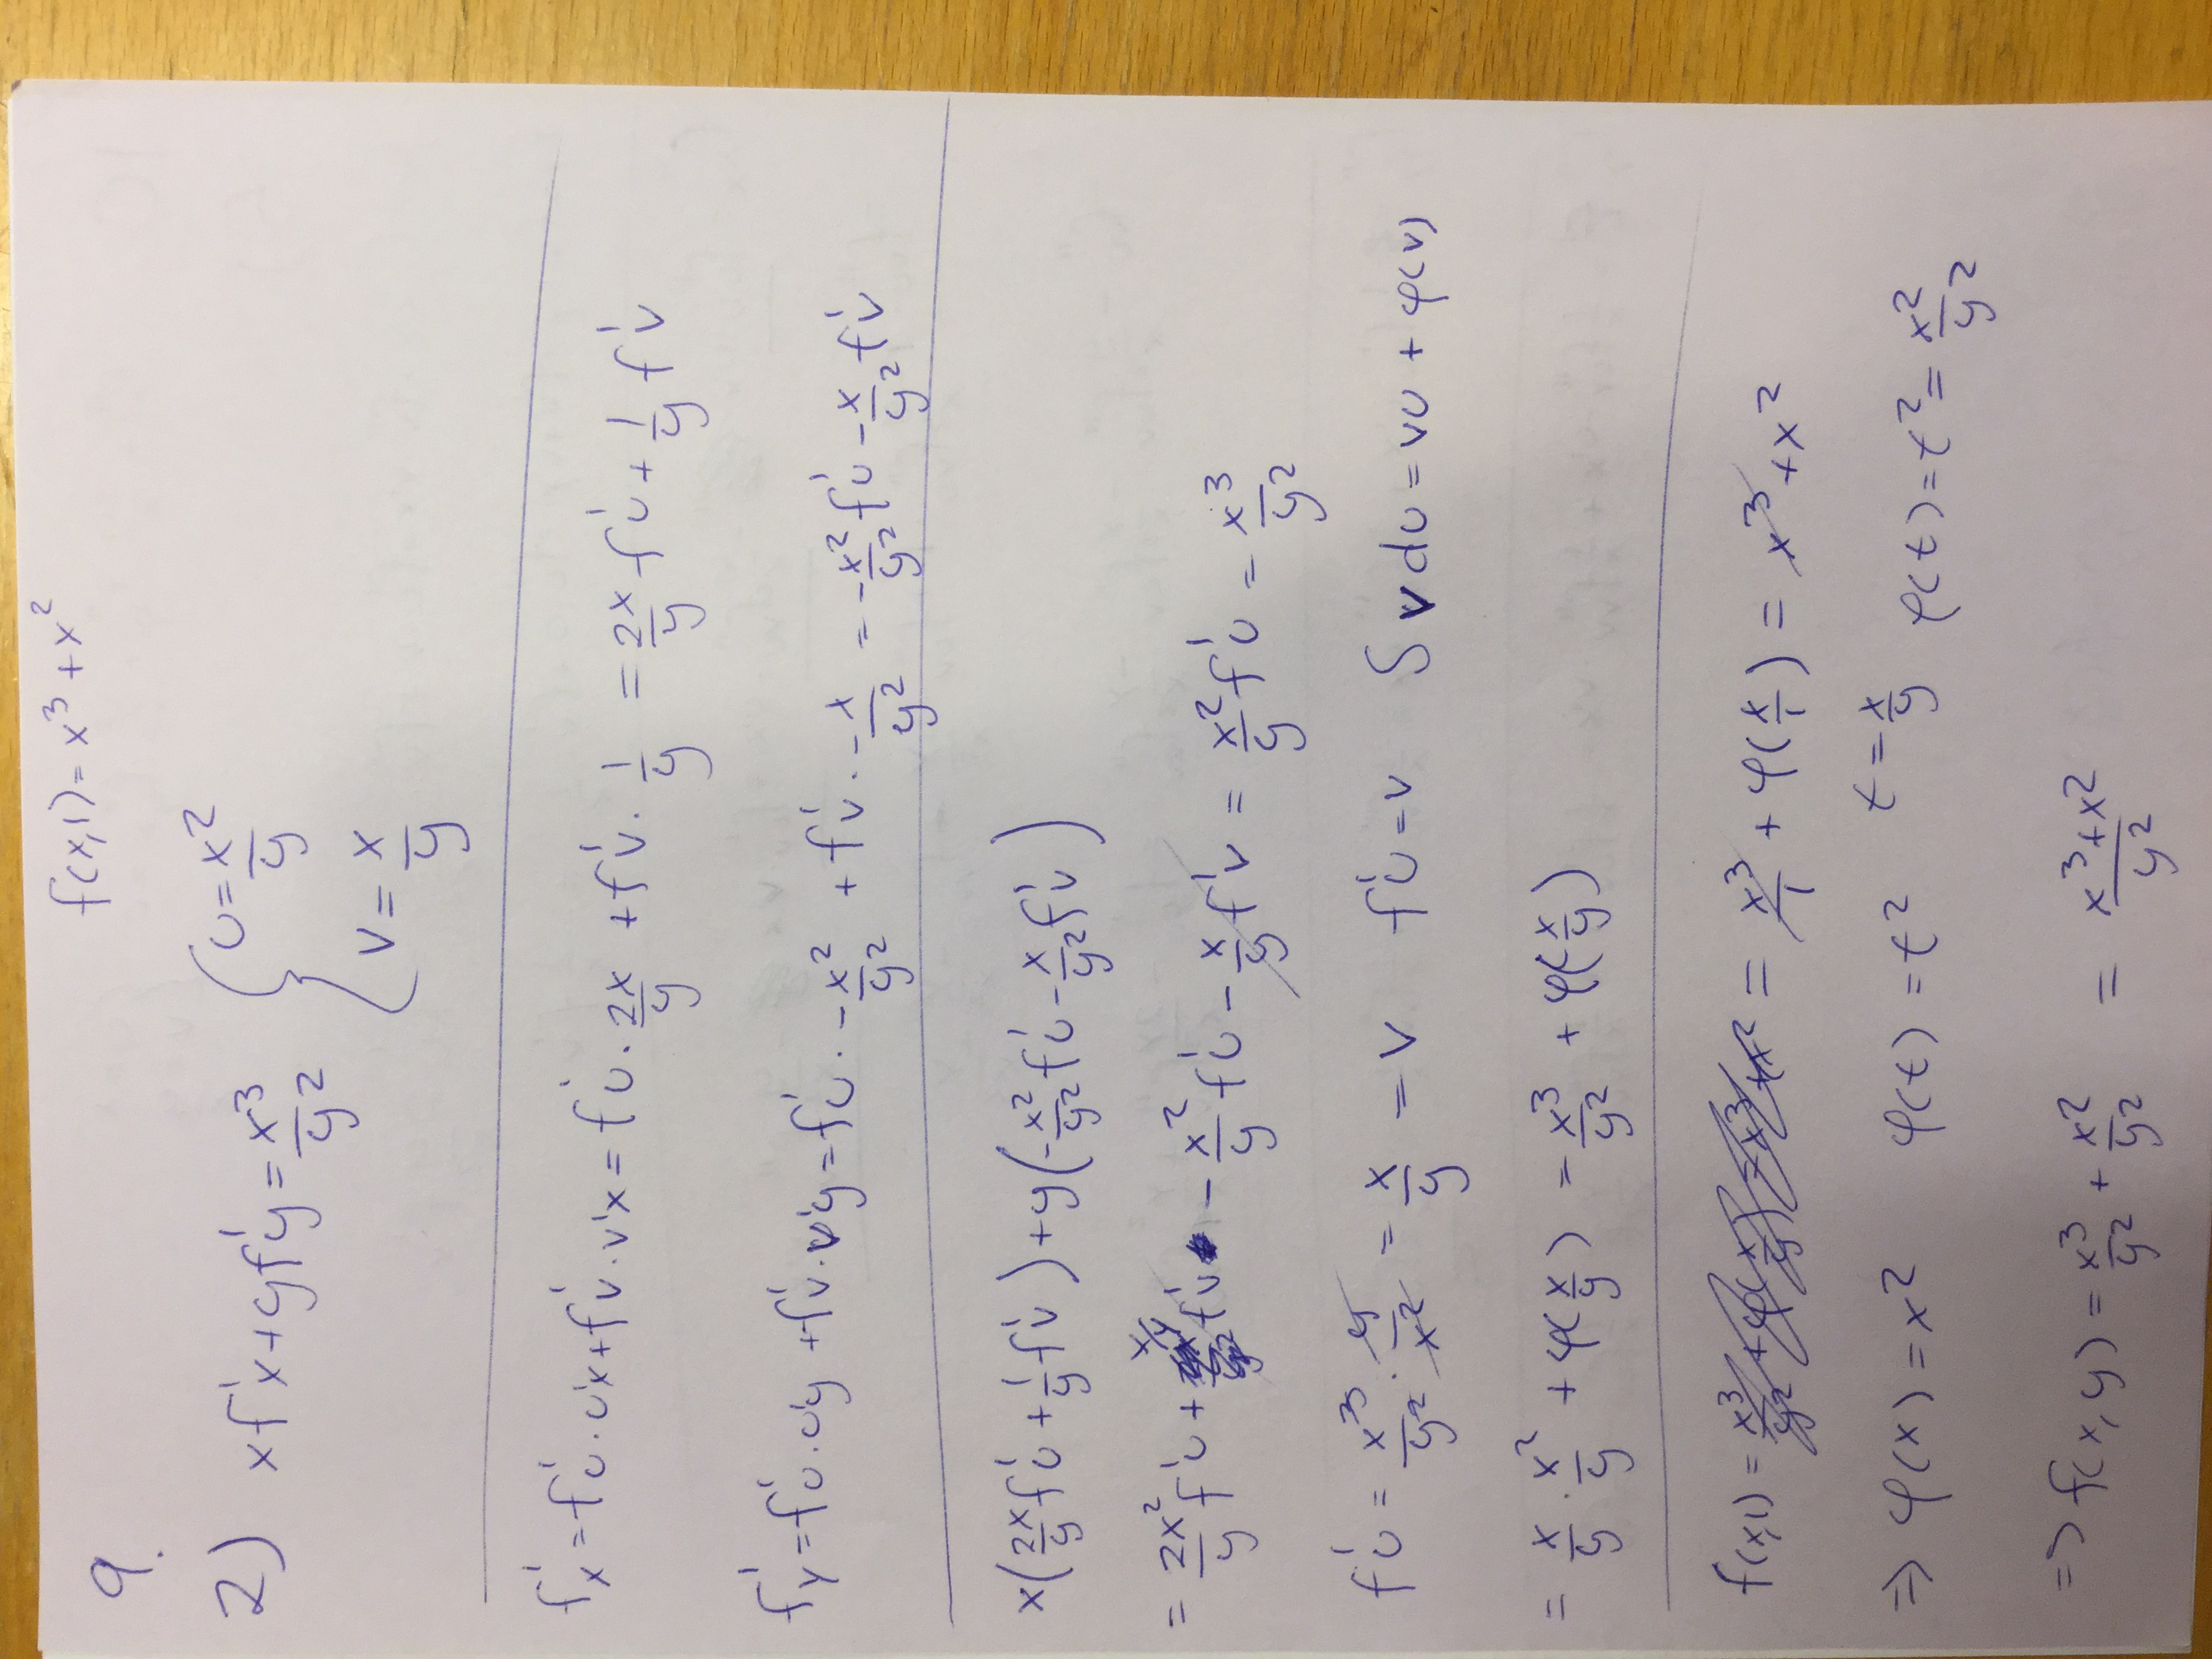 f(x,1) = x³ + x²
9.
2) xf'x + yf'y = x³/y² { u = x²/y
v = x/y
f'x = f'u · u'x + f'v · v'x = f'u · 2x/y + f'v · 1/y = 2x/y f'u + 1/y f'v
f'y = f'u · u'y + f'v · v'y = f'u · -x²/y² + f'v · -x/y² = -x²/y² f'u - x/y² f'v
x(2x/y f'u + 1/y f'v) + y(-x²/y² f'u - x/y² f'v)
= 2x²/y f'u + x/y f'v - x²/y f'u - x/y f'v = x²/y f'u = x³/y²
f'u = x³/y² · y/x² = x/y = v f'u = v ∫ v du = vu + φ(v)
= x/y · x²/y + φ(x/y) = x³/y² + φ(x/y)
f(x,1) = x³/y² + φ(x/y) = x³ + x² = x³/1 + φ(x/1) = x³ + x²
⇒ φ(x) = x² φ(t) = t² t = x/y φ(t) = t² = x²/y²
⇒ f(x,y) = x³/y² + x²/y² = x³+x²/y²